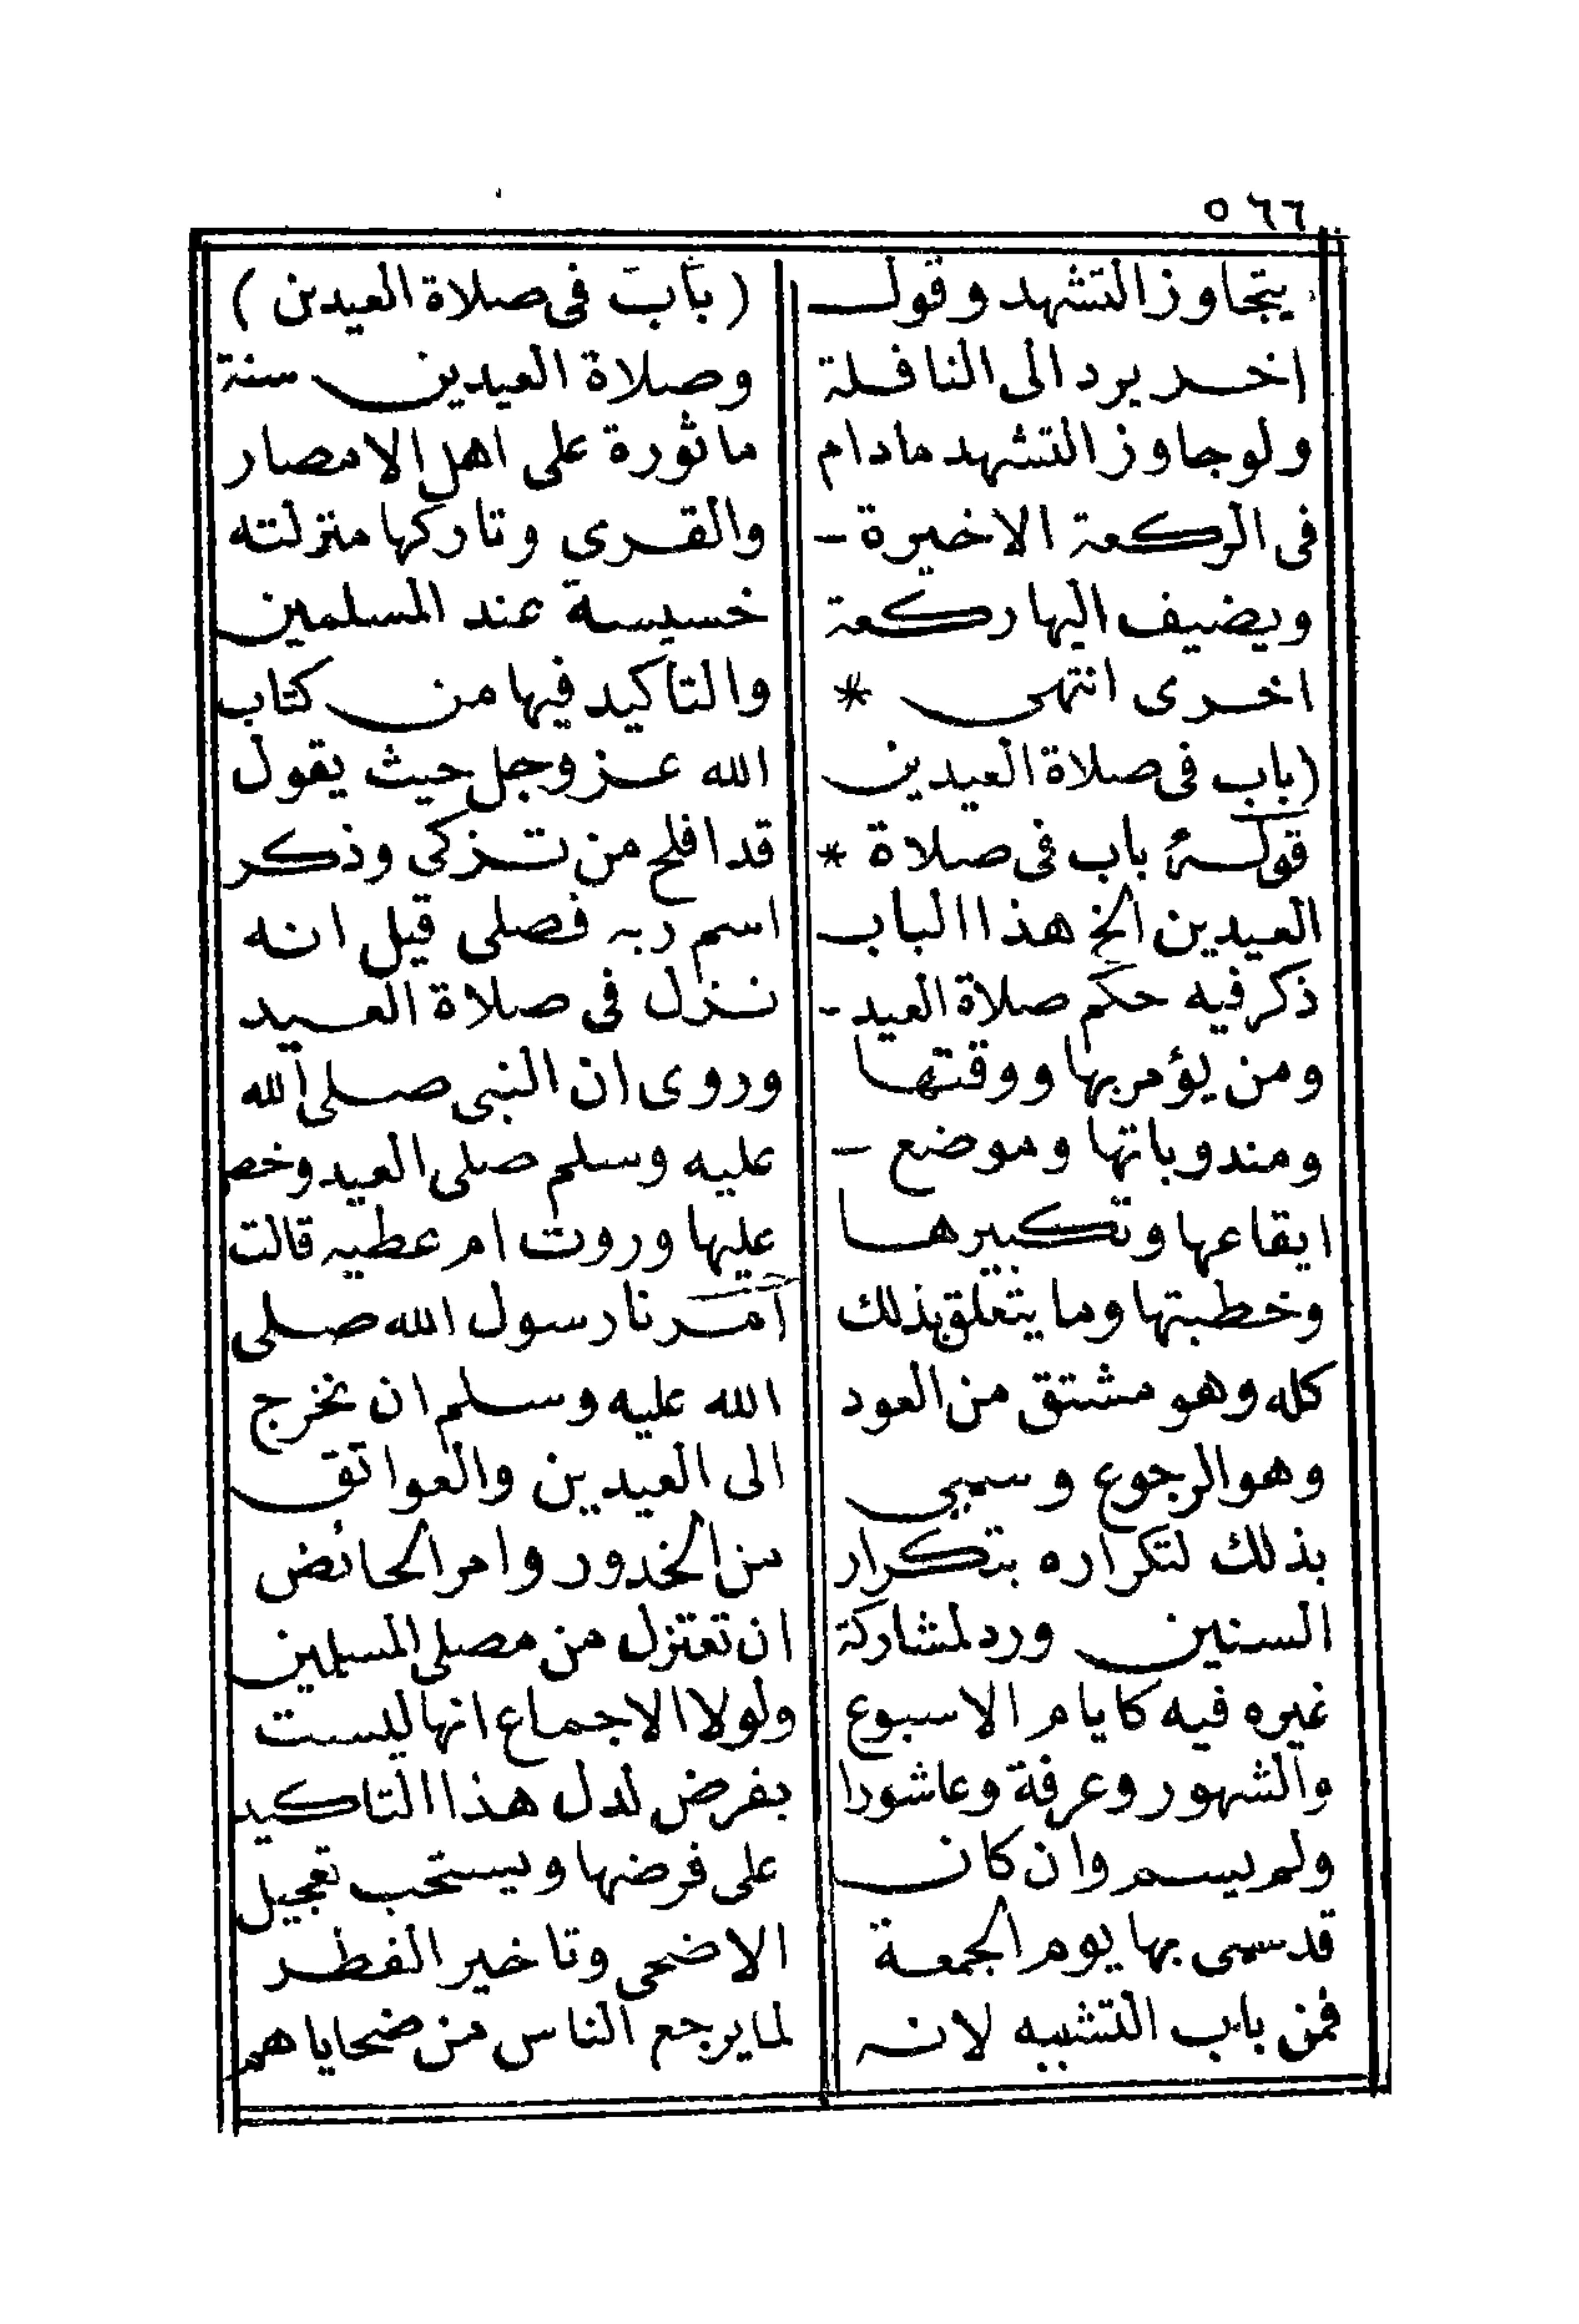 ٥٦٦
يتجاوز التشهد وقول
اخر يرد الى النافلة
ولو جاوز التشهد مادام
فى الركعة الاخيرة -
ويضيف اليها ركعة
اخرى انتهى *
(باب فى صلاة العيدين
قوله باب فى صلاة *
العيدين الخ هذا الباب
ذكر فيه حكم صلاة العيد -
ومن يؤمر بها ووقتها
ومندوباتها وموضع -
ايقاعها وتكبيرها
وخطبتها وما يتعلق بذلك
كله وهو مشتق من العود
وهو الرجوع وسمى
بذلك لتكراره بتكرار
السنين ورد لمشاركة
غيره فيه كايام الاسبوع
والشهور وعرفة وعاشورا
ولم يسم وان كان
قد سمى بها يوم الجمعة
فمن باب التشبيه لانه
(باب فى صلاة العيدين)
وصلاة العيدين سنة
ماثورة على اهل الامصار
والقرى وتاركها منزلته
خسيسة عند المسلمين
والتاكيد فيها من كتاب
الله عز وجل حيث يقول
قد افلح من تزكى وذكر
اسم ربه فصلى قيل انه
نزل فى صلاة العيد
وروى ان النبى صلى الله
عليه وسلم صلى العيد وخص
عليها وروت ام عطيه قالت
امرنا رسول الله صلى
الله عليه وسلم ان نخرج
الى العيدين والعواتق
من الخدور وامر الحائض
ان تعتزل من مصلى المسلمين
ولولا الاجماع انها ليست
بفرض لدل هذا التاكيد
على فرضها ويستحب تعجيل
الاضحى وتاخير الفطر
لما يرجع الناس من ضحاياهم